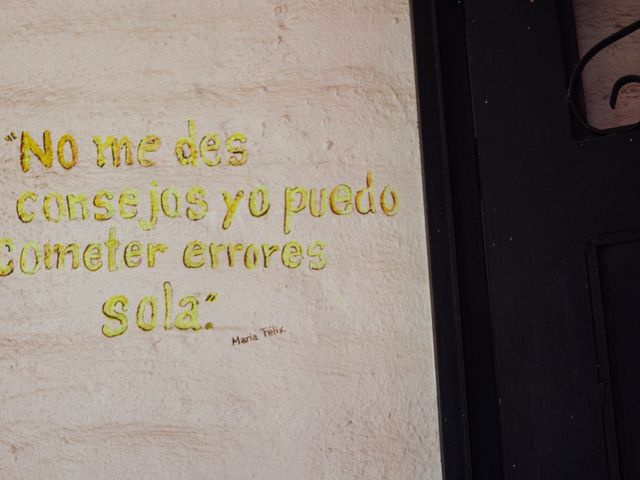 "No me des
consejos yo puedo
cometer errores
sola."
María Félix.